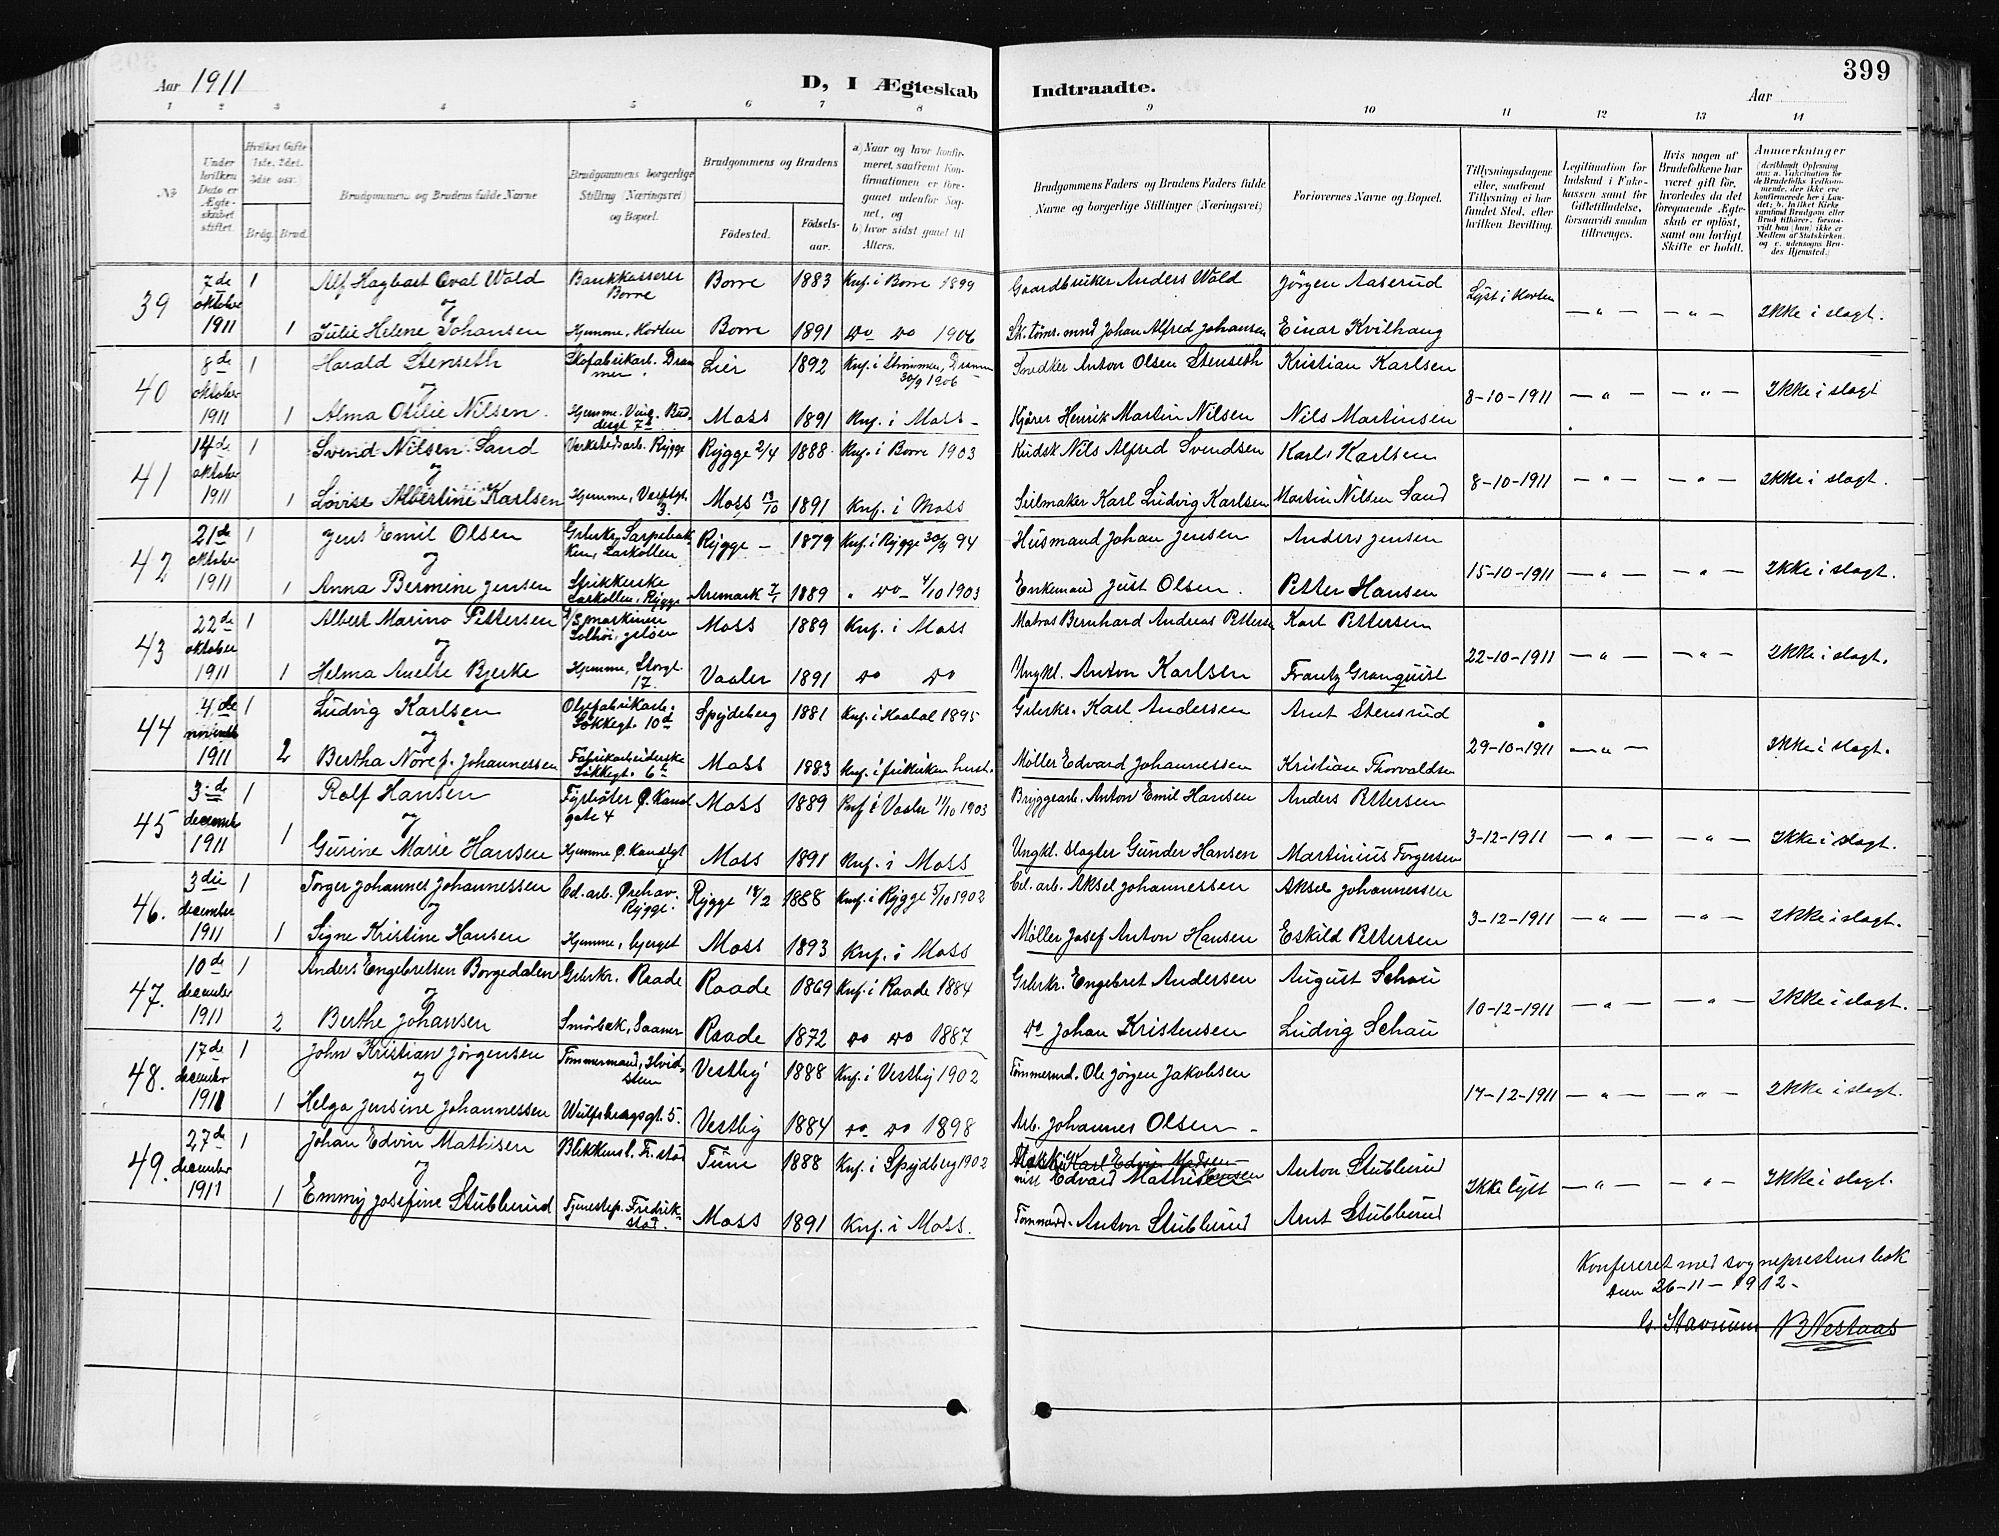 399
Aar 1911
D, I Ægteskab Indtraadte.
Aar
1 2 3 4 5 6 7 8 9 10 11 12 13 14
№
Under hvilken Dato er Ægteskabet stiftet.
Hvilket Gifte
Brdg. Brud.
Brudgommens og Brudens fulde Navne
Brudgommens borgerlige Stilling (Næringsvei) og Bopæl.
Brudgommens og Brudens
Fødested.
Fødselsaar.
a) Naar og hvor konfirmeret, saafremt Konfirmationen er foregaaet udenfor Sognet, og
b) hvor sidst gaaet til Alters.
Brudgommens Faders og Brudens Faders fulde Navne og borgerlige Stillinger (Næringsvei)
Forlovernes Navne og Bopæl.
Tillysningsdagene eller, saafremt Tillysning ei har fundet Sted, efter hvilken Bevilling.
Legitimation for Indskud i Enkekassen samt for Giftetilladelse, forsaavidt saadan tiltrænges.
Hvis nogen af Brudefolkene har været gift før, hvorledes da det foregaaende Ægteskab er opløst, samt om lovligt Skifte er holdt.
Anmærkninger
39 7de oktober 1911 1 Alf Hagbart Oval Wold Bankkasserer Borre Borre 1883 Knf. i Borre 1899 Gaardbruker Anders Wold Jörgen Aaserud Lyst i Horten — „ — — „ — Ikke i slagt.
og
1 Julie Helene Johansen Hjemme, Horten Borre 1891 do do 1906 Sk. tömr. mnd Johan Alfred Johansen Einar Kvilhaug
40 8de oktober 1911 1 Harald Stenseth Skofabrikarb. Drammen Lier 1892 Knf. i Strömmen, Drammen 30/9 1906 Snedker Anton Olsen Stenseth Kristian Karlsen 8-10-1911 — „ — — „ — Ikke i slagt
og
1 Alma Otilie Nilsen. Hjemme, Moss 1891 Knf. i Moss - Kjörer Henrik Martin Nilsen Nils Martinsen
41 14de oktober 1911 1 Svend Nilsen Sand Verkstedsarb. Rygge Rygge 2/4 1888 Knf. i Borre 1903 Kudsk Nils Alfred Svendsen Karl Karlsen 8-10-1911 — „ — — „ — Ikke i slagt.
og
1 Lovise Albertine Karlsen Hjemme, 3. Moss 19/10 1891 Knf. i Moss Seilmaker Karl Ludvig Karlsen Martin Nilsen Sand
42 21de oktober 1911 1 Jens Emil Olsen Larkollen Rygge — 1879 Knf. i Rygge 30/9 94 Husmand Johan Jensen Anders Jensen 15-10-1911 — „ — — „ — Ikke i slagt.
og
1 Anna Bermine Jensen Strikkerske Larkollen, Rygge Aremark 1889 „ do 4/10 1903 Enkemand Just Olsen. Petter Hansen
43 22de oktober 1911 1 Albert Marino Pettersen Moss 1889 Knf. i Moss Matros Bernhard Andreas Pettersen Karl Pettersen 22-10-1911 — „ — — „ — Ikke i slagt.
og
1 Helma Anette Bjerke Hjemme, Storgt. 17. Vaaler 1891 do do Ungkl. Anton Karlsen Frantz Granquist
44 4de november 1911 1 Ludvig Karlsen 10d Spydeberg 1881 Knf. i Haabøl 1895 Grbrkr. Karl Andersen Arnt Stensrud 29-10-1911 — „ — Ikke i slagt.
og
2 Bertha Nore f. Johannessen Fabrikarbeiderske Moss 1883 Knf. i frikirken herst. Møller Edvard Johannessen Kristian Thorvaldsen
45 3-de december 1911 1 Rolf Hansen Fyrböter Ø. Kanalgate 4 Moss 1889 Knf. i Vaaler 11/10 1903 Bryggearb. Anton Emil Hansen Anders Pettersen 3-12-1911 — „ — — „ — Ikke i slagt.
og
1 Gurine Marie Hansen Hjemme Ø. Kanalgt 4 Moss 1891 Knf. i Moss Ungkl. slagter Gunder Hansen Martinius Torgersen
46. 3die december 1911 1 Torger Johannes Johannessen Cel. arb. Ørehav. Rygge. Rygge 18/2 1888 Knf. i Rygge 5/10 1902 Cel. arb. Aksel Johannessen Aksel Johannessen 3-12-1911 — „ — — „ — Ikke i slagt.
og
1 Signe Kristine Hansen Hjemme, bjerget Moss 1893 Knf. i Moss Møller Josef Anton Hansen Eskild Pettersen
47. 10de december 1911 1 Anders Engebretsen Borgedalen Grbrkr. Raade Raade 1869 Knf. i Raade 1884 Grbrkr. Engebret Andersen August Schou 10-12-1911 — „ — — „ — Ikke i slagt.
og
2 Berthe Johansen Smörbæk, Saaner Raade 1872 do do 1887 do Johan Kristensen Ludvig Schau
48. 17de december 1911 1 John Kristian Jörgensen Tömmermand, Hvidsten Vestby 1888 Knf. i Vestby 1902 Tömmermd. Ole Jörgen Jakobsen 17-12-1911 — „ — — „ — Ikke i slagt.
og
1 Helga Jensine Johannessen Wulfsbergsgt. 5. Vestby 1884 do do 1898 Arb. Johannes Olsen -
49. 27de december 1911 1 Johan Edvin Mathisen Blikkensl. Fr.stad Tune 1888 Knf. i Spydberg 1902 Karl Edvin Madsen Edvard Mathisen Anton Stubberud Ikke lyst — „ — — „ — Ikke i slagt.
og
1 Emmy Josefine Stubberud Tjenestep. Fredrikstad. Moss 1891 Knf. i Moss. Tömmermd. Anton Stubberud Arnt Stubberud
Konfereret med sogneprestens bok
den 26-11-1912-
G. Stavnum N B Nestaas